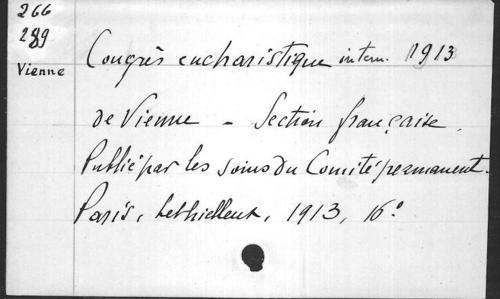 266
289
Vienne
Congrès eucharistique intern. 1913
de Vienne - Section française.
Publié par les soins du Comité permanent.
Paris, Lethielleux, 1913, 16º